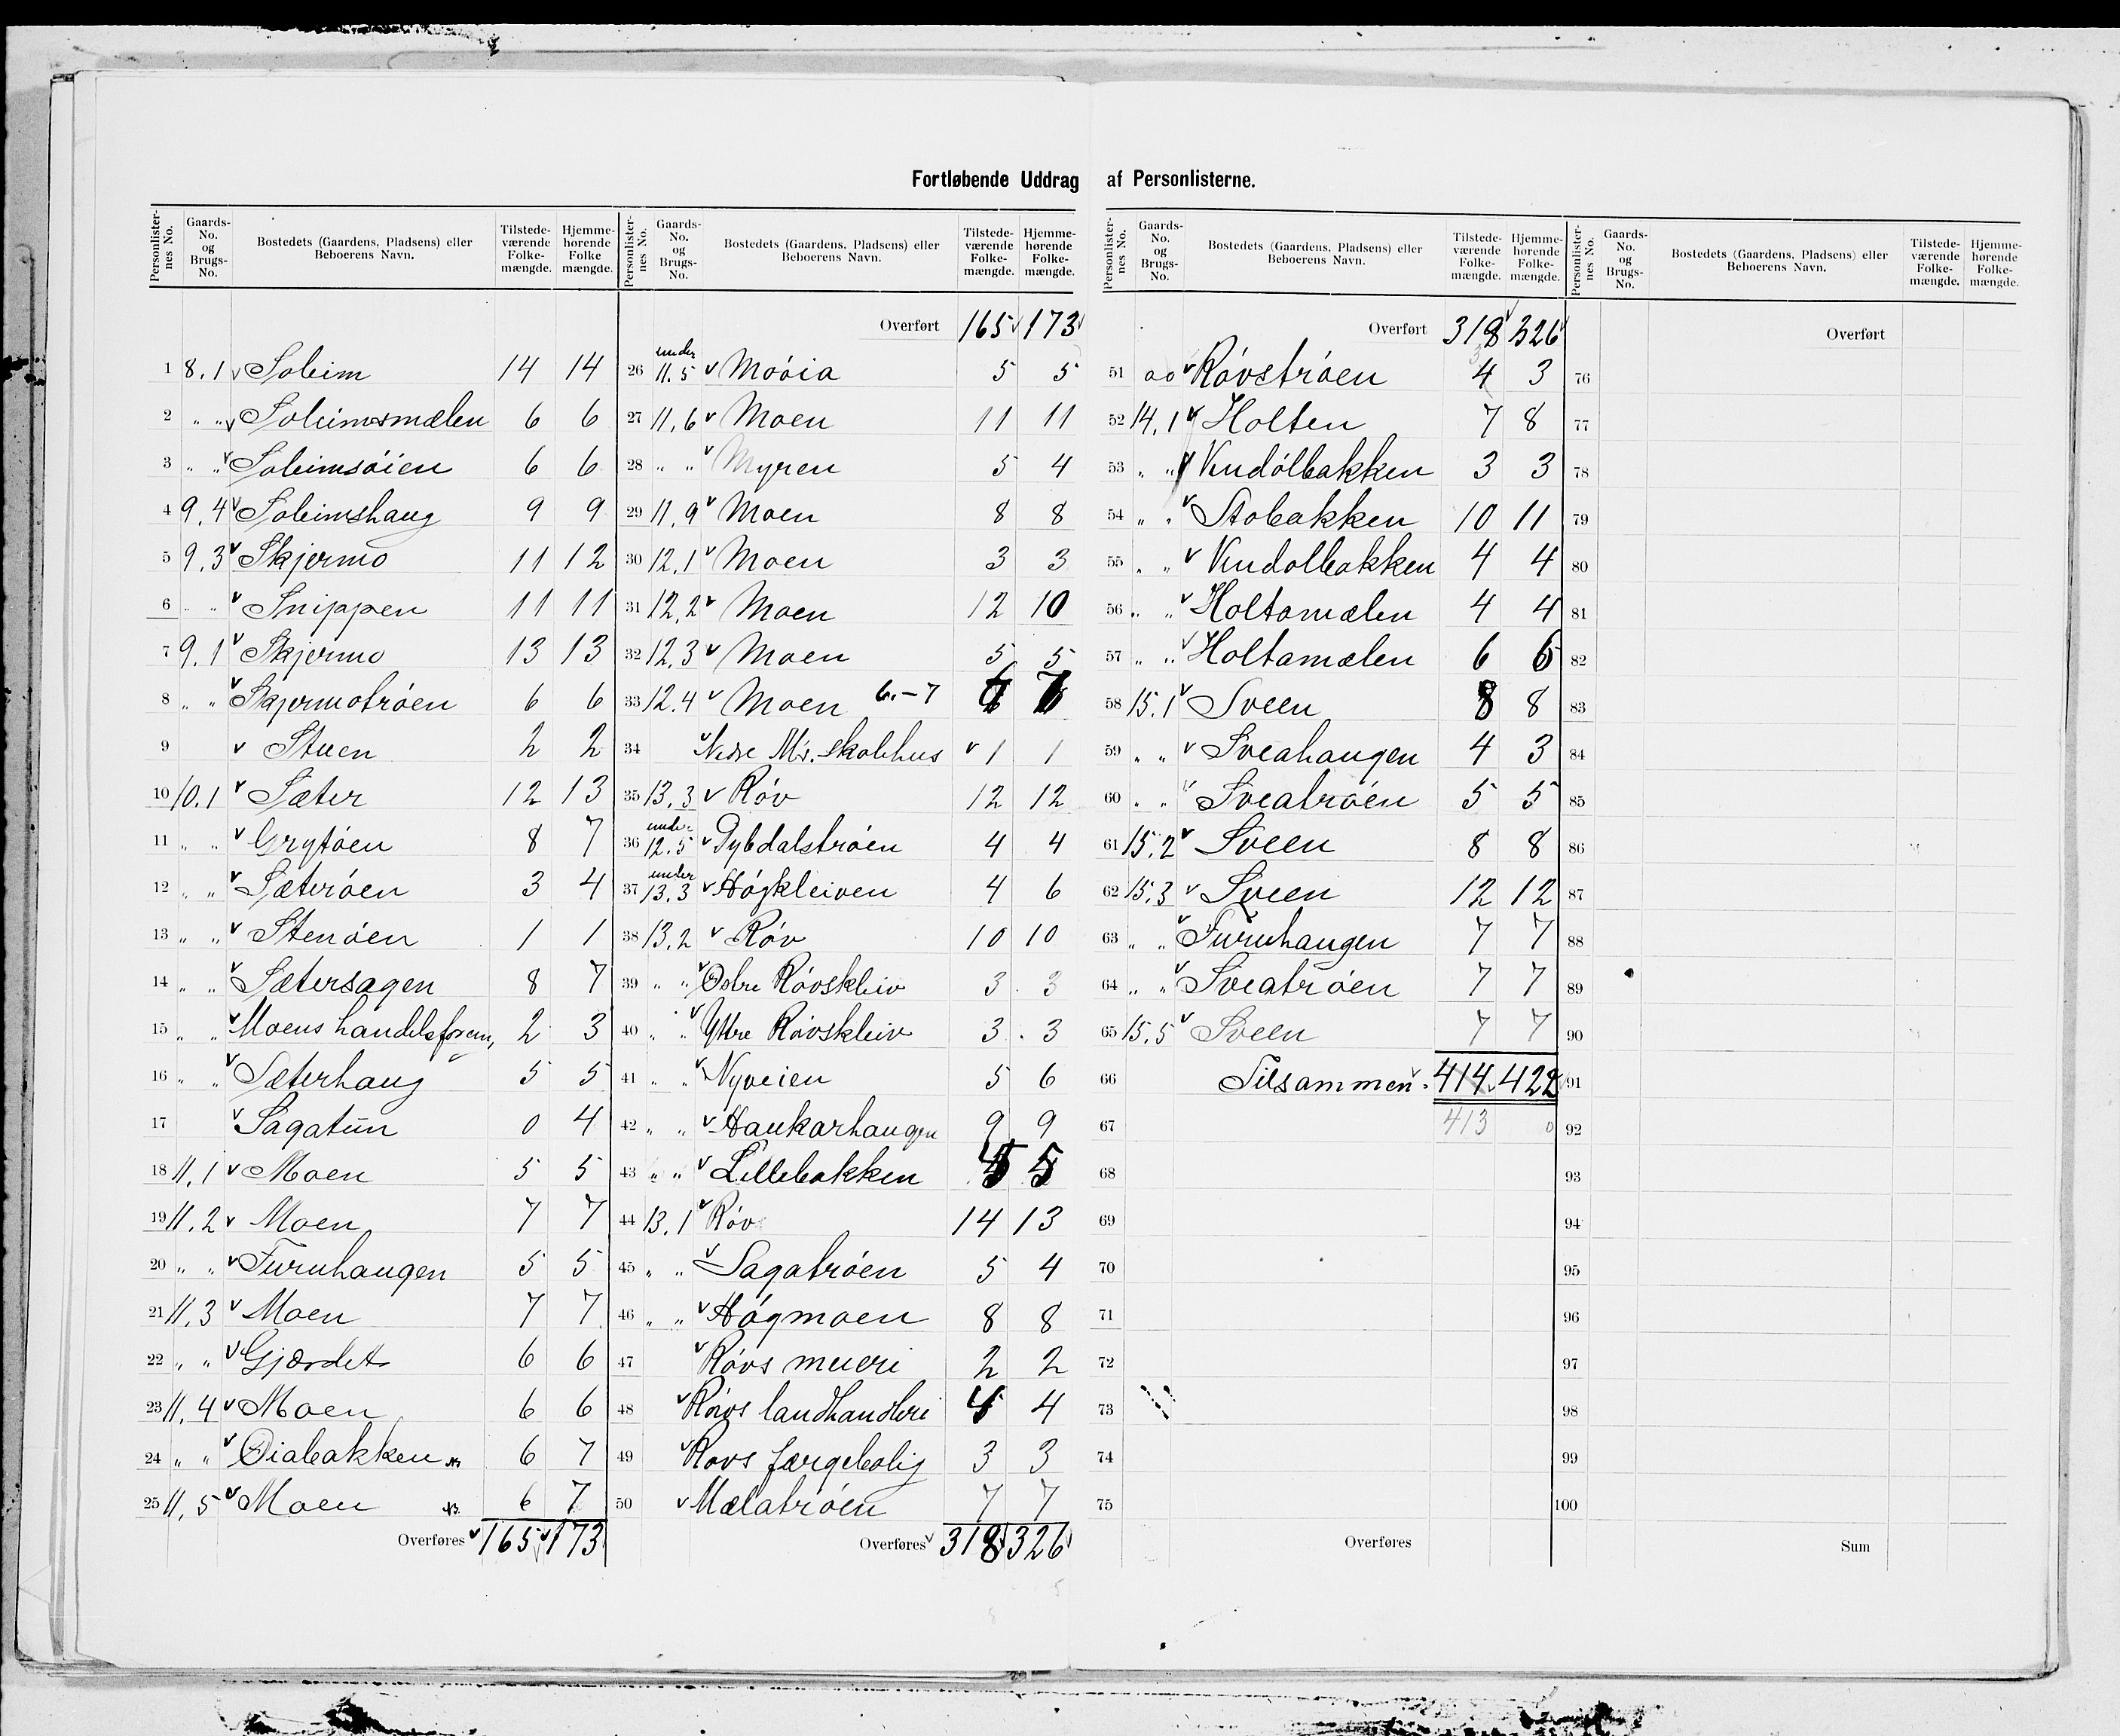 Fortløbende Uddrag af Personlisterne.
Personlister-nes No. Gaards-No. og Brugs-No. Bostedets (Gaardens, Pladsens) eller Beboerens Navn. Tilstede-værende Folke-mængde. Hjemme-hørende Folke mængde.
1 8.1 v Soleim 14 14
2 „ „ v Soleimsmælen 6 6
3 „ „ v Soleimsøien 6 6
4 9.4 v Soleimshaug 9 9
5 9.3 v Skjermo 11 12
6 „ „ v Snippen 11 11
7 9.1 v Skjermo 13 13
8 „ „ v Skjermotrøen 6 6
9 v Stuen 2 2
10 10.1 v Sæter 12 13
11 „ „ v Grytøen 8 7
12 „ „ v Sæterøen 3 4
13 „ „ v Stenøen 1 1
14 „ „ v Sætersagen 8 7
15 „ „ v Moens handelsforen, 2 3
16 „ „ v Sæterhaug 5 5
17 v Sagatun 0 4
18 11.1 v Moen 5 5
19 11.2 v Moen 7 7
20 „ „ v Furuhaugen 5 5
21 11.3 v Moen 7 7
22 „ „ v Gjærdet 6 6
23 11.4 v Moen 6 6
24 „ „ v Øiabakken 6 7
25 11.5 v Moen 6 7
Overføres v 165 v 173
Personlister-nes No. Gaards-No. og Brugs-No. Bostedets (Gaardens, Pladsens) eller Beboerens Navn. Tilstede-værende Folke-mængde. Hjemme-hørende Folke-mængde.
Overført 165 v 173 v
26 under 11.5 v Moøia 5 5
27 11.6 v Moen 11 11
28 „ „ v Myren 5 4
29 11.9 v Moen 8 8
30 12.1 v Moen 3 3
31 12.2 v Moen 12 10
32 12.3 v Moen 5 5
33 12.4 v Moen 6.–7 6 7
34 v Nedre Mo's. Skolehus v 1 1
35 13.3 v Røv 12 12
36 under 12.5 v Dybdalstrøen 4 4
37 under 13.3 v Høgkleiven 4 6
38 13.2 v Røv 10 10
39 „ „ v Østre Røvskleiv 3 3
40 „ „ v Yttre Røvskleiv 3 3
41 „ „ v Nyveien 5 6
42 „ „ v Haukarhaugen 9 9
43 „ „ v Lillebakken 5 5
44 13.1 v Røv 14 13
45 „ „ v Sagatrøen 5 4
46 „ „ v Høgmoen 8 8
47 v Røvs meieri 2 2
48 v Røvs landhandleri 4 4
49 v Røvs færgebolig 3 3
50 v Mælatrøen 7 7
Overføres v 318 326
Personlister-nes No. Gaards-No. og Brugs-No. Bostedets (Gaardens, Pladsens) eller Beboerens Navn. Tilstede-værende Folke-mængde. Hjemme-hørende Folke-mængde.
Overført 318 326
51 v Røvstrøen 4 3
52 14.1 v Holten 7 8
53 „ „ v Vindølbakken 3 3
54 „ „ v Stobakken 10 11
55 „ „ v Vindølbakken 4 4
56 „ „ v Holtamælen 4 4
57 „ „ v Holtamælen 6 6
58 15.1 v Sveen 8 8
59 „ „ v Sveahaugen 4 3
60 „ „ v Sveatrøen 5 5
61 15.2 v Sveen 8 8
62 15.3 v Sveen 12 12
63 „ „ v Furuhaugen 7 7
64 „ „ v Sveatrøen 7 7
65 15.5 v Sveen 7 7
66 Tilsammen 414 422
67 413
68
69
70
71
72
73
74
75
Overføres
Personlister-nes No. Gaards-No. og Brugs-No. Bostedets (Gaardens, Pladsens) eller Beboerens Navn. Tilstede-værende Folke-mængde. Hjemme-hørende Folke-mængde.
Overført
76
77
78
79
80
81
82
83
84
85
86
87
88
89
90
91
92
93
94
95
96
97
98
99
100
Sum